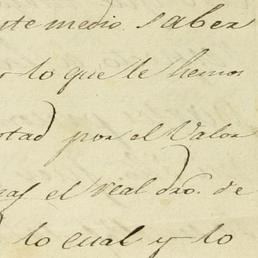 nte medio saber
lo que le hemos
rtad por el Valor
el real dro. de
lo cual y lo